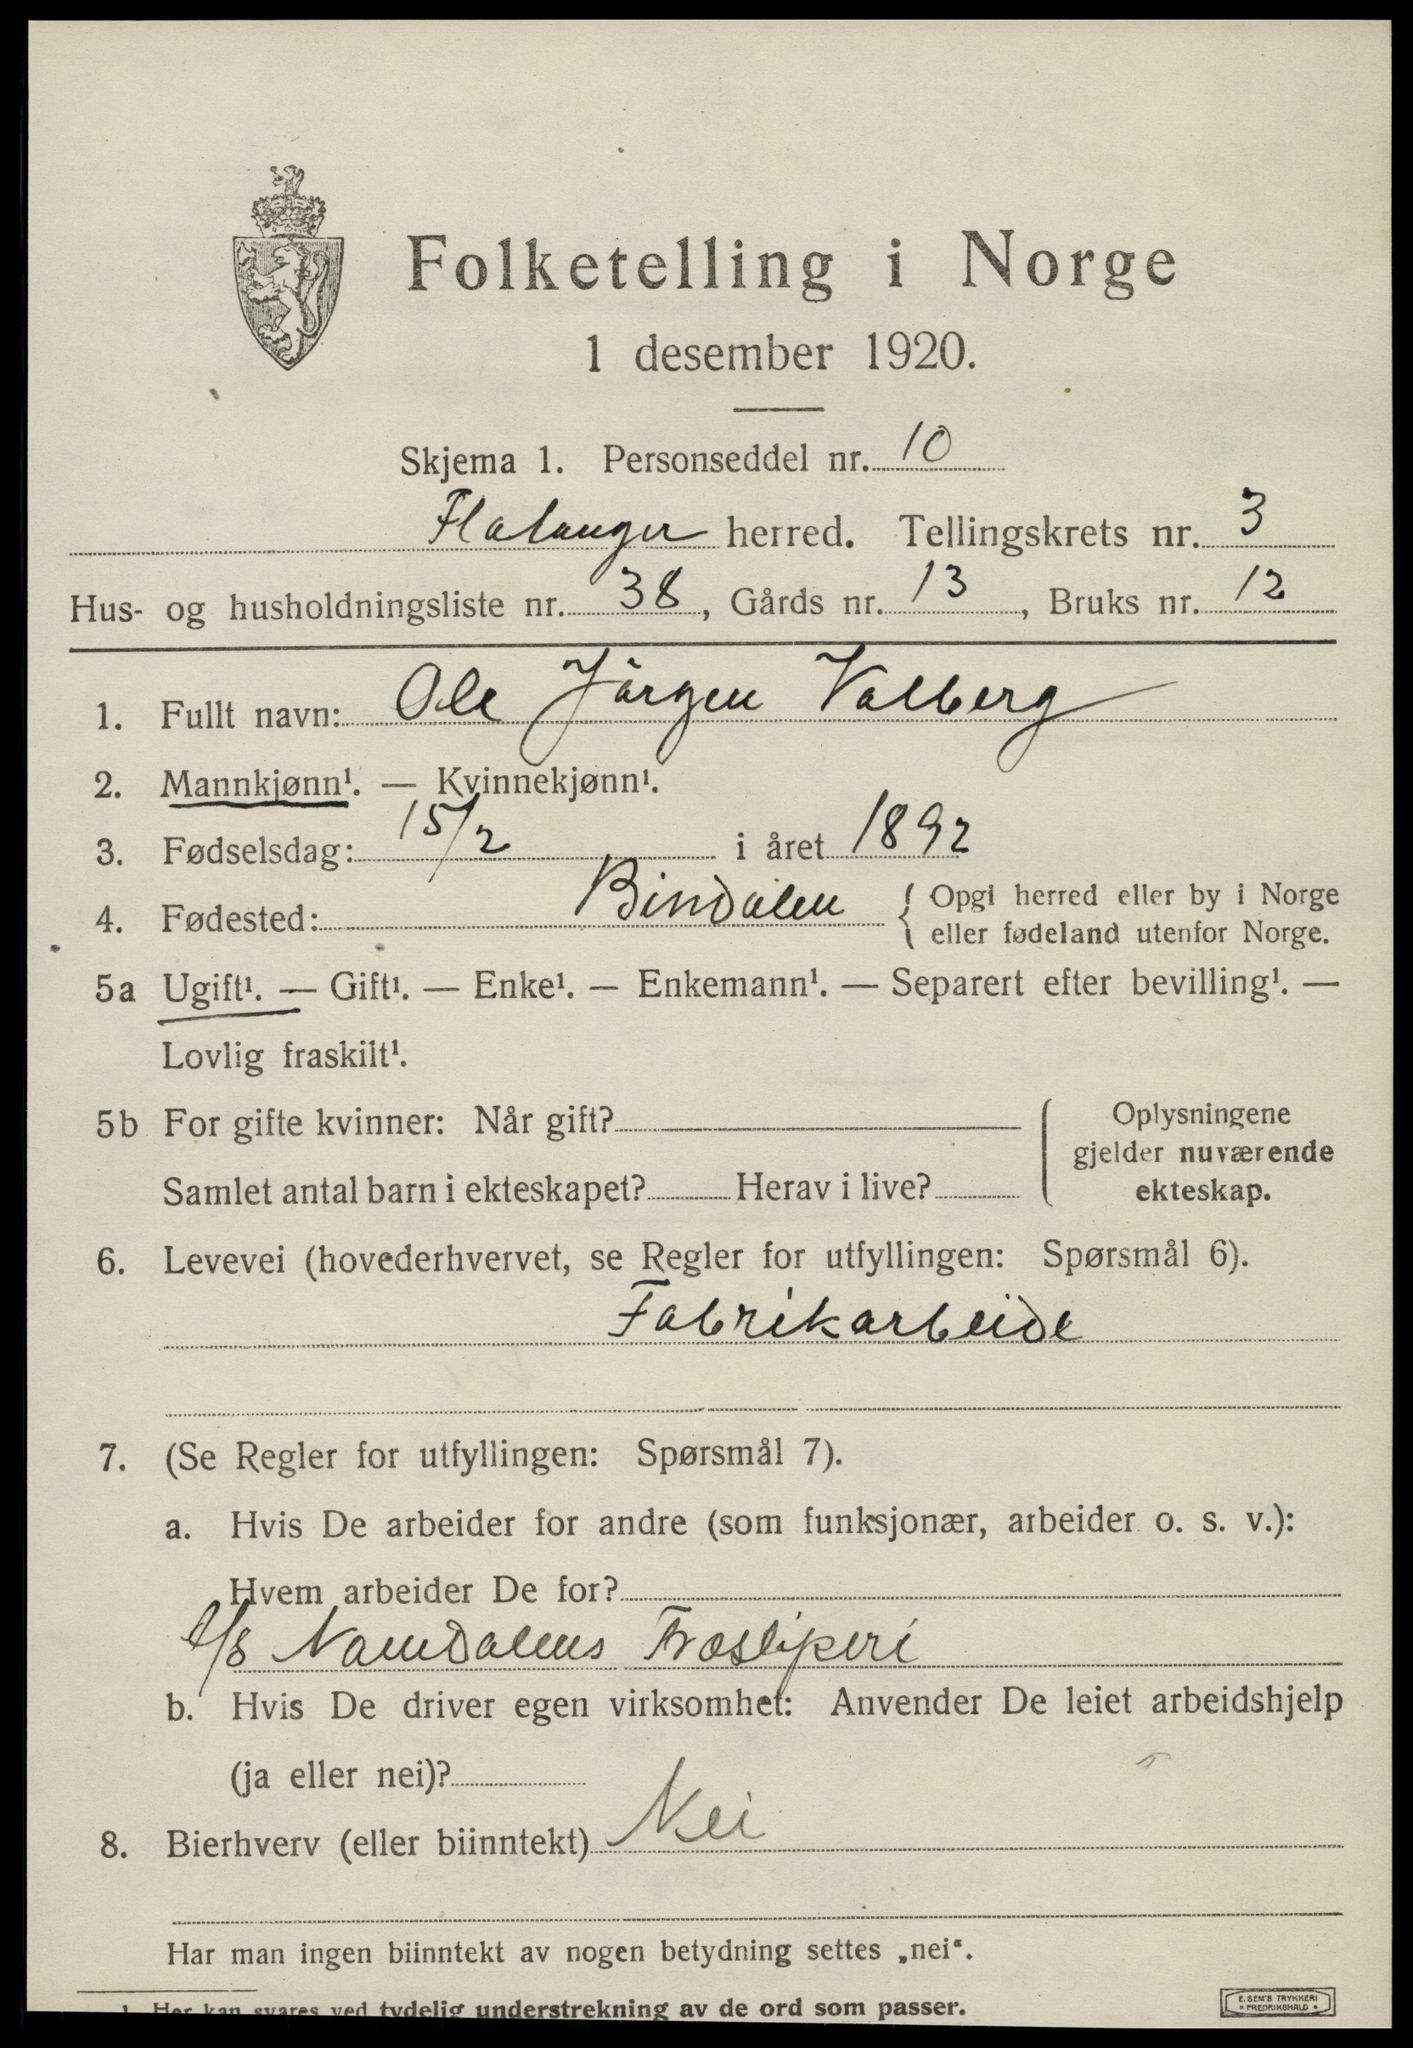 Folketelling i Norge
1 desember 1920.
Skjema 1. Personseddel nr. 10
Flatanger herred. Tellingskrets nr. 3
Hus- og husholdningsliste nr. 38, Gårds nr. 13, Bruks nr. 12
1. Fullt navn: Ole Jörgen Valberg
2. Mannkjønn¹. — Kvinnekjønn¹.
3. Fødselsdag: 15/2 i året 1892
4. Fødested: Bindalen { Opgi herred eller by i Norge
eller fødeland utenfor Norge.
5a Ugift¹. — Gift¹. — Enke¹. — Enkemann¹. — Separert efter bevilling¹. —
Lovlig fraskilt¹.
5b For gifte kvinner: Når gift?
Samlet antal barn i ekteskapet? Herav i live?
Oplysningene
gjelder nuværende
ekteskap.
6. Levevei (hovederhvervet, se Regler for utfyllingen: Spørsmål 6).
Fabrikarbeide
7. (Se Regler for utfyllingen: Spørsmål 7).
a. Hvis De arbeider for andre (som funksjonær, arbeider o. s. v.):
Hvem arbeider De for?
A/S Namdalens Træsliperi
b. Hvis De driver egen virksomhet: Anvender De leiet arbeidshjelp
(ja eller nei)?
8. Bierhverv (eller biinntekt) Nei
Har man ingen biinntekt av nogen betydning settes „nei“.
1 Her kan svares ved tydelig understrekning av de ord som passer.
E. SEM'S TRYKKERI
FREDRIKSHALD